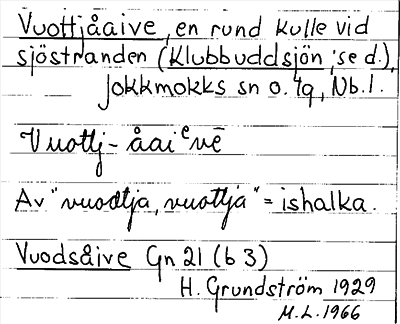 Vuottjåaive, en rund kulle vid
sjöstranden (Klubbuddsjön; se d.),
Jokkmokks sn o. tg, Nb.l.
Vuottj-åaiᵉvē
Av "vuodtja, vuottja" = ishalka.
Vuodsåive Gn 21 (b 3)
H. Grundström 1929
M.L. 1966